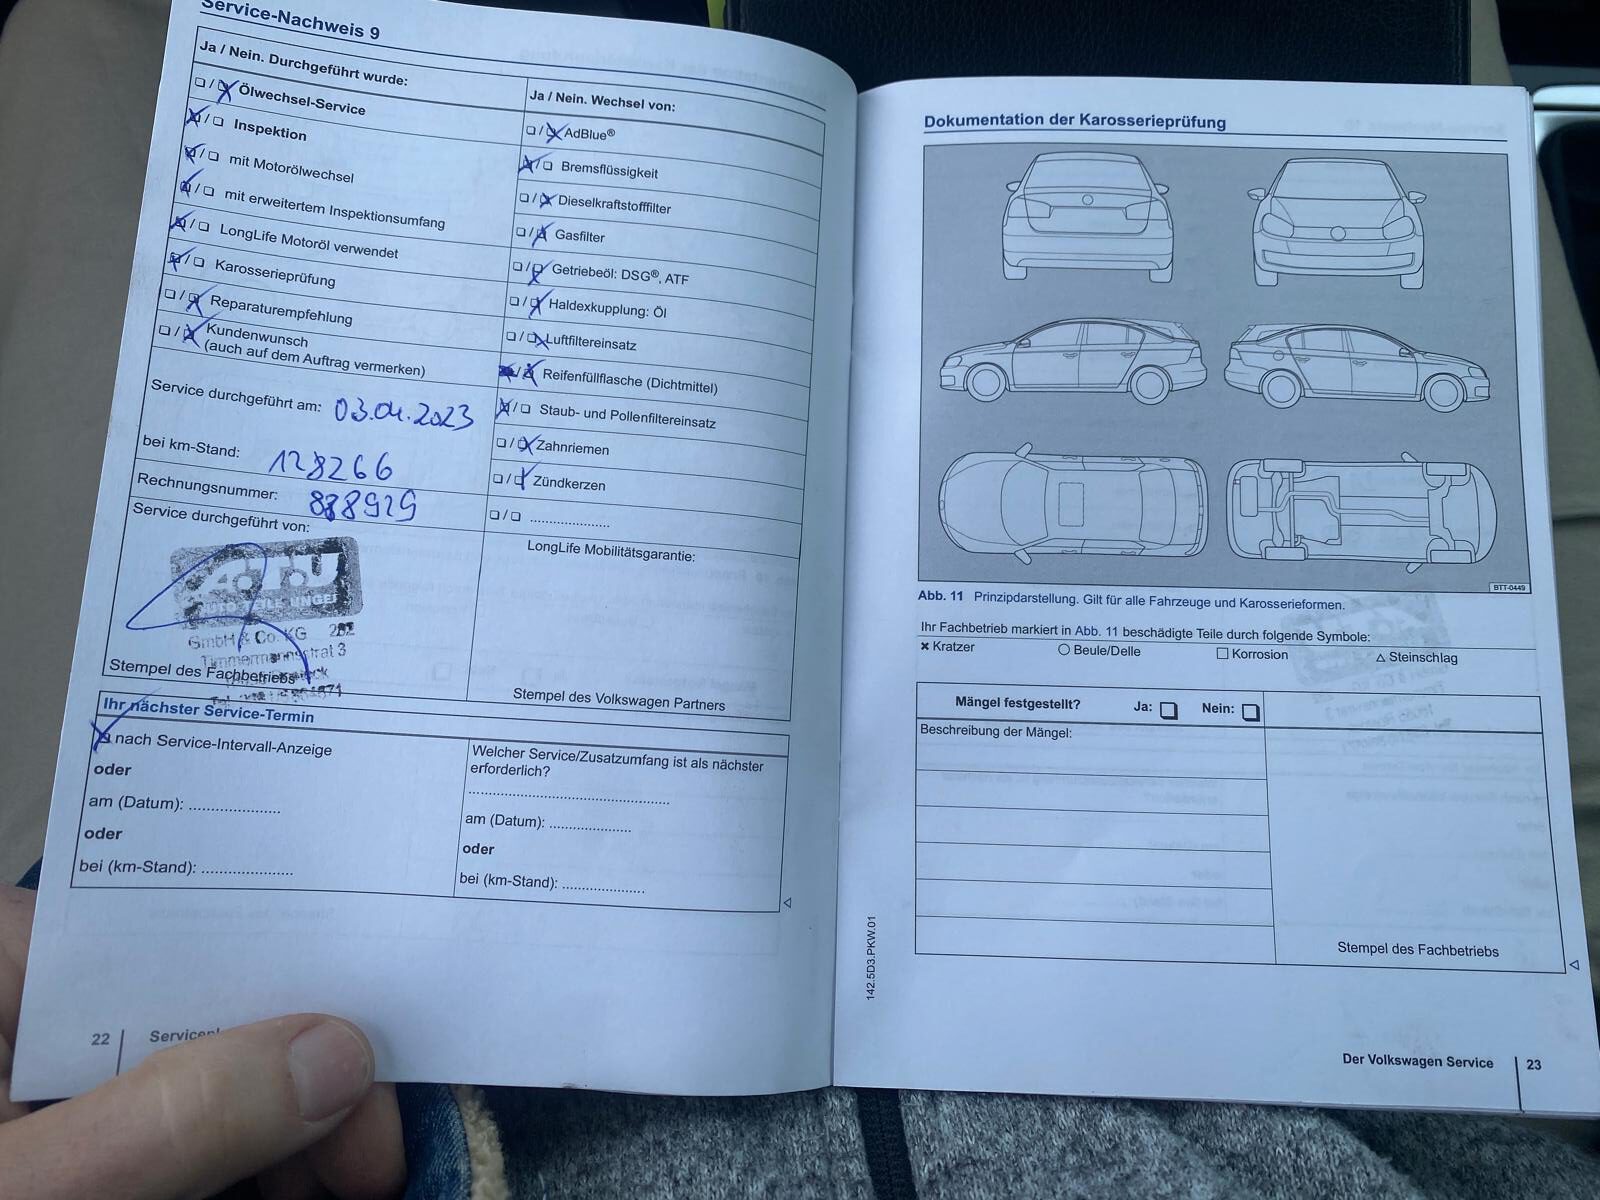 Service-Nachweis 9
Ja / Nein. Durchgeführt wurde:
❏ / ❏ Ölwechsel-Service
❏ / ❏ Inspektion
❏ / ❏ mit Motorölwechsel
❏ / ❏ mit erweitertem Inspektionsumfang
❏ / ❏ LongLife Motoröl verwendet
❏ / ❏ Karosserieprüfung
❏ / ❏ Reparaturempfehlung
❏ / ❏ Kundenwunsch
(auch auf dem Auftrag vermerken)
Service durchgeführt am: 03.04.2023
bei km-Stand: 128266
Rechnungsnummer: 888929
Service durchgeführt von:
A.T.U
GmbH & Co. KG
Stempel des Fachbetriebs
Ja / Nein. Wechsel von:
❏ / ❏ AdBlue®
❏ / ❏ Bremsflüssigkeit
❏ / ❏ Dieselkraftstofffilter
❏ / ❏ Gasfilter
❏ / ❏ Getriebeöl: DSG®, ATF
❏ / ❏ Haldexkupplung: Öl
❏ / ❏ Luftfiltereinsatz
❏ / ❏ Reifenfüllflasche (Dichtmittel)
❏ / ❏ Staub- und Pollenfiltereinsatz
❏ / ❏ Zahnriemen
❏ / ❏ Zündkerzen
❏ / ❏ ......................
LongLife Mobilitätsgarantie:
Stempel des Volkswagen Partners
Ihr nächster Service-Termin
❏ nach Service-Intervall-Anzeige
oder
am (Datum): ......................
oder
bei (km-Stand): ......................
Welcher Service/Zusatzumfang ist als nächster
erforderlich?
......................................................
am (Datum): ......................
oder
bei (km-Stand): ......................
22
Dokumentation der Karosserieprüfung
BTT-0449
Abb. 11 Prinzipdarstellung. Gilt für alle Fahrzeuge und Karosserieformen.
Ihr Fachbetrieb markiert in Abb. 11 beschädigte Teile durch folgende Symbole:
✖ Kratzer ○ Beule/Delle □ Korrosion △ Steinschlag
Mängel festgestellt? Ja: ❏ Nein: ❏
Beschreibung der Mängel:
Stempel des Fachbetriebs
142.5D3.PKW.01
Der Volkswagen Service 23